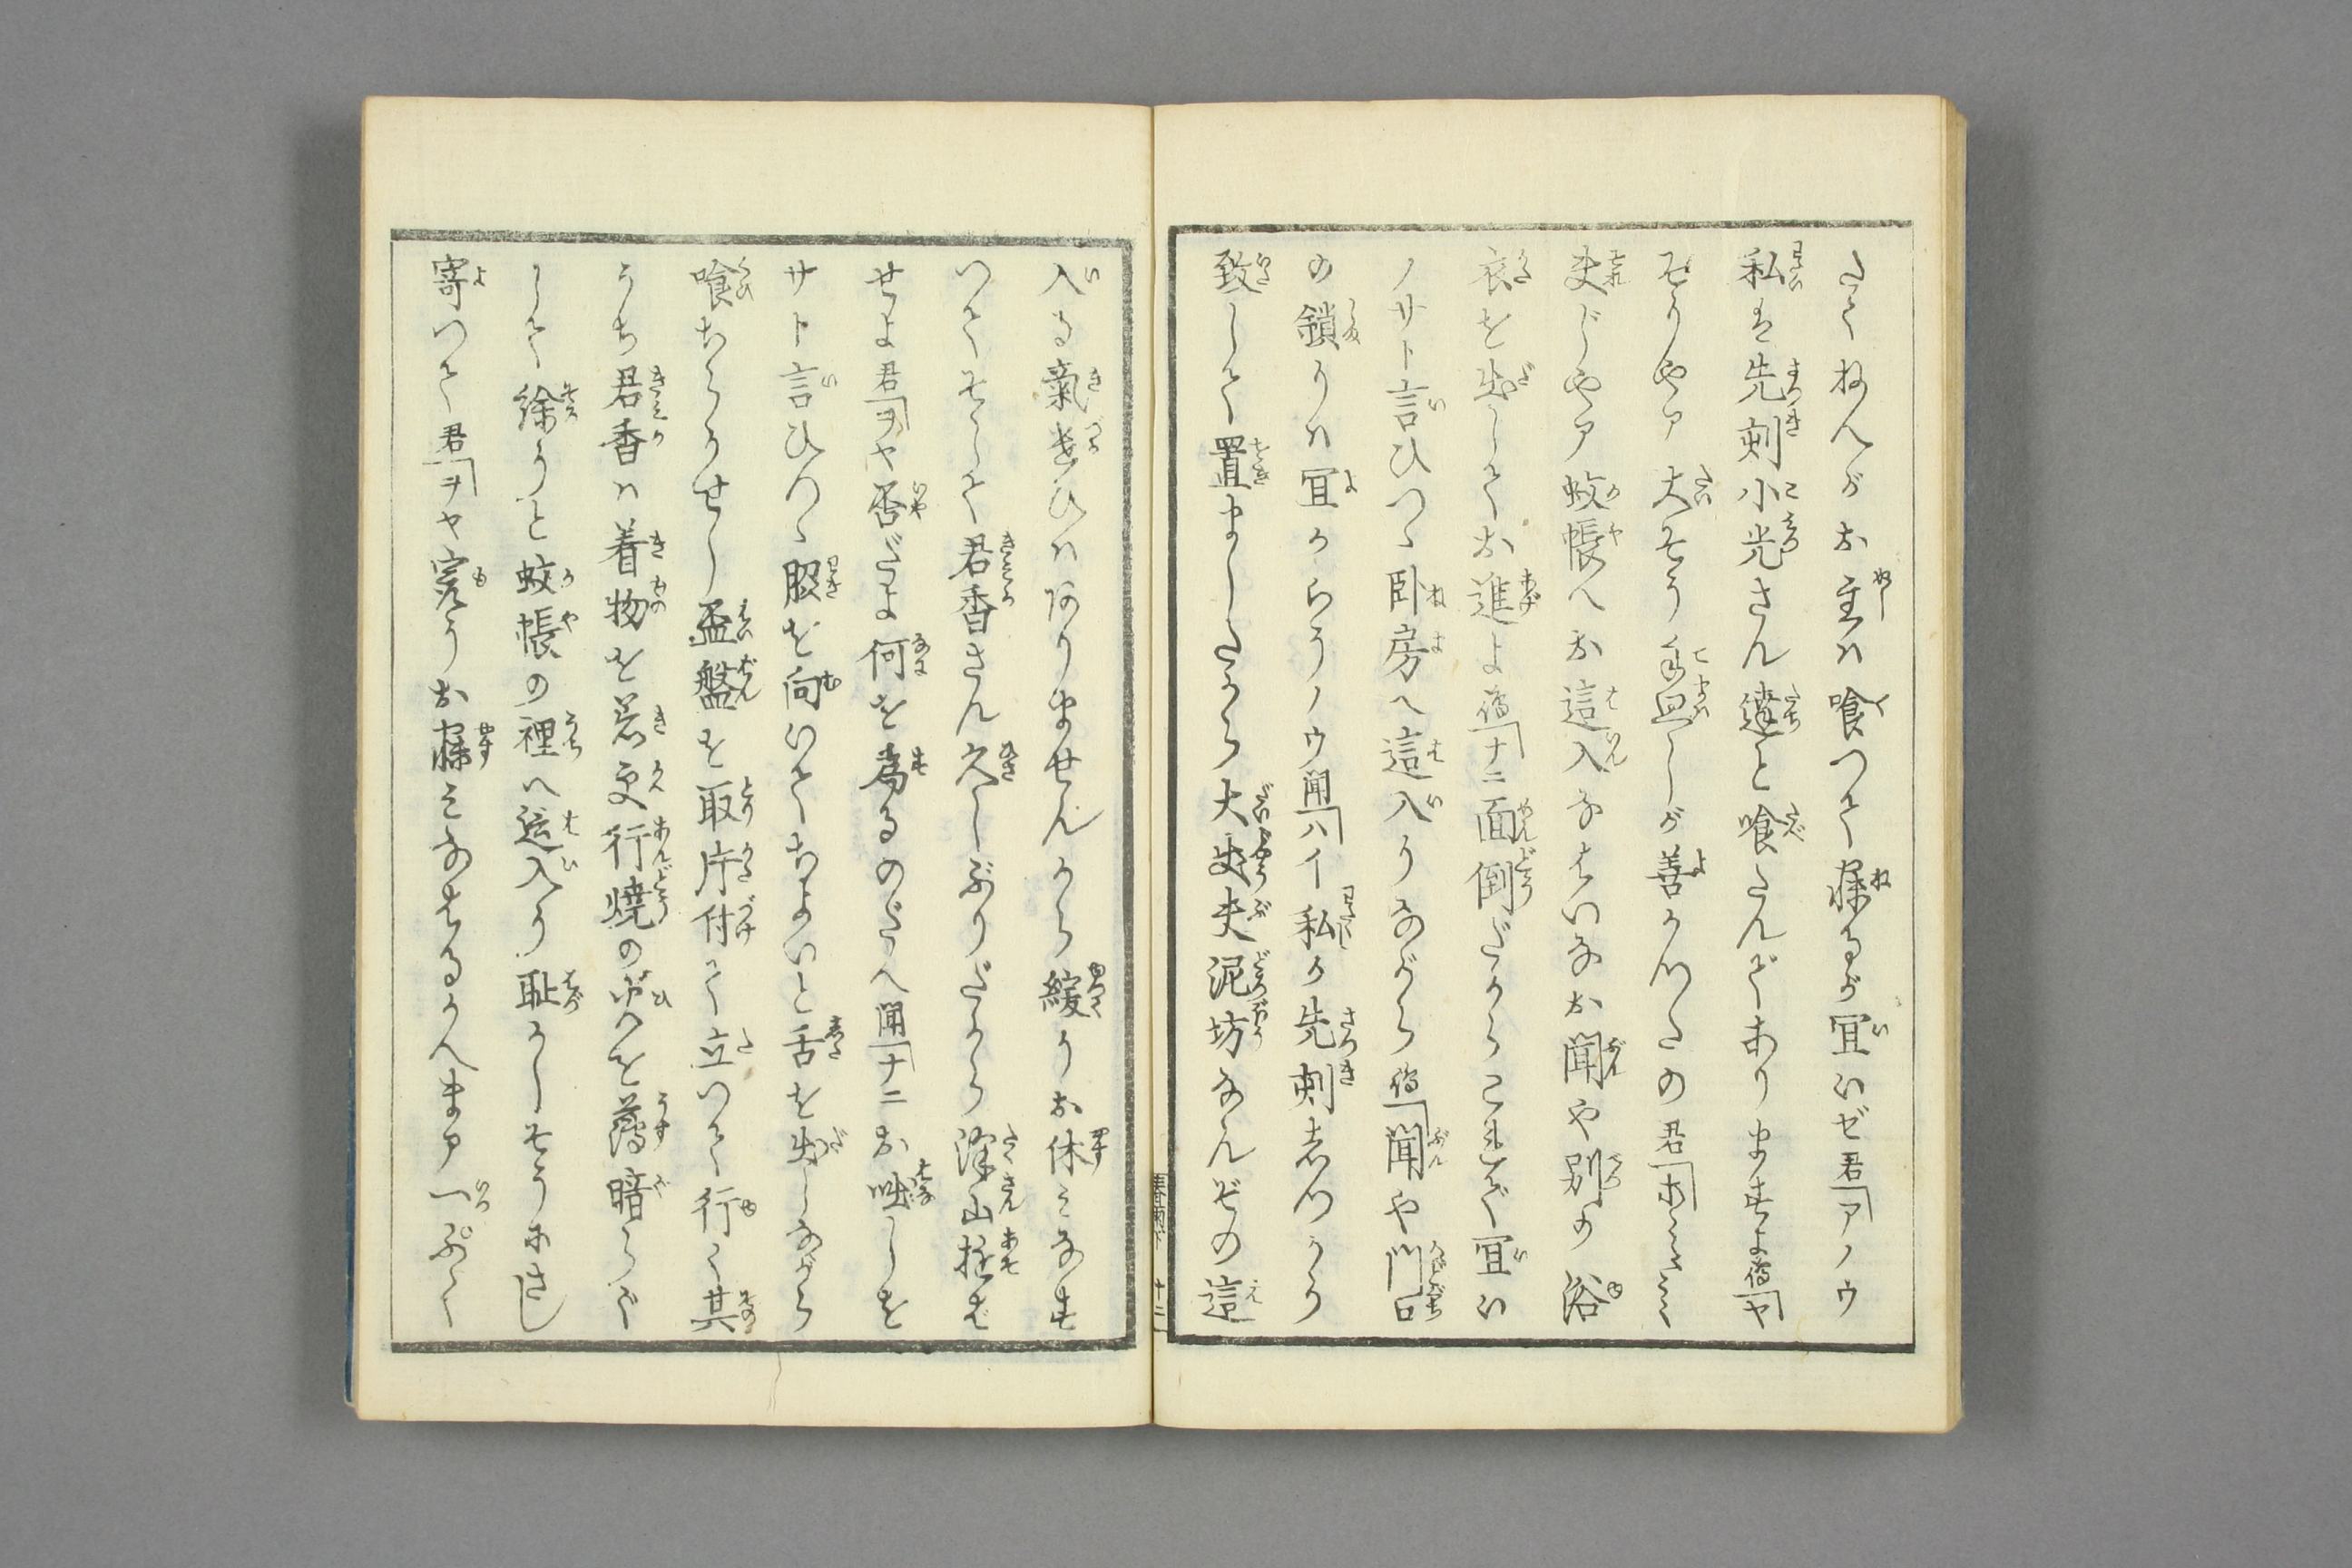 さくねんがお主ハ喰つて寐るが宜いゼ君「アノウ
私は先刻小光さん達と喰たんでありますよ僞「ヤ
そうやア大そう手廻しが善かつたの君「ホヽヽヽ
夫じやア蚊帳へお這入なはいなお聞や別の浴
衣を出してお進よ僞「ナニ面倒だからこれで宜い
ノサト言ひつゝ臥房へ這入りながら僞「聞や門口
の鎖りハ宜からうノウ聞「ハイ私が先刻志つかり
致して置ましたから大丈夫泥坊なんぞの這
入る氣遣ひハありませんから緩りお休みなせ
つてそして君香さん久しぶりだから澤山極ば
せよ君「ヲヤ否だよ何を爲るのだへ聞「ナニお咄しを
サト言ひつゝ脇を向いてちよいと舌を出しながら
喰ちらかせし盃盤を取片付て立つて行く其
うち君香ハ着物を着更行燈の火を薄暗らく
して徐うと蚊帳の裡へ這入り耻かしそうにさし
寄つて君「ヲヤ寔うお寐みなはるかへまア一ぷく
十二